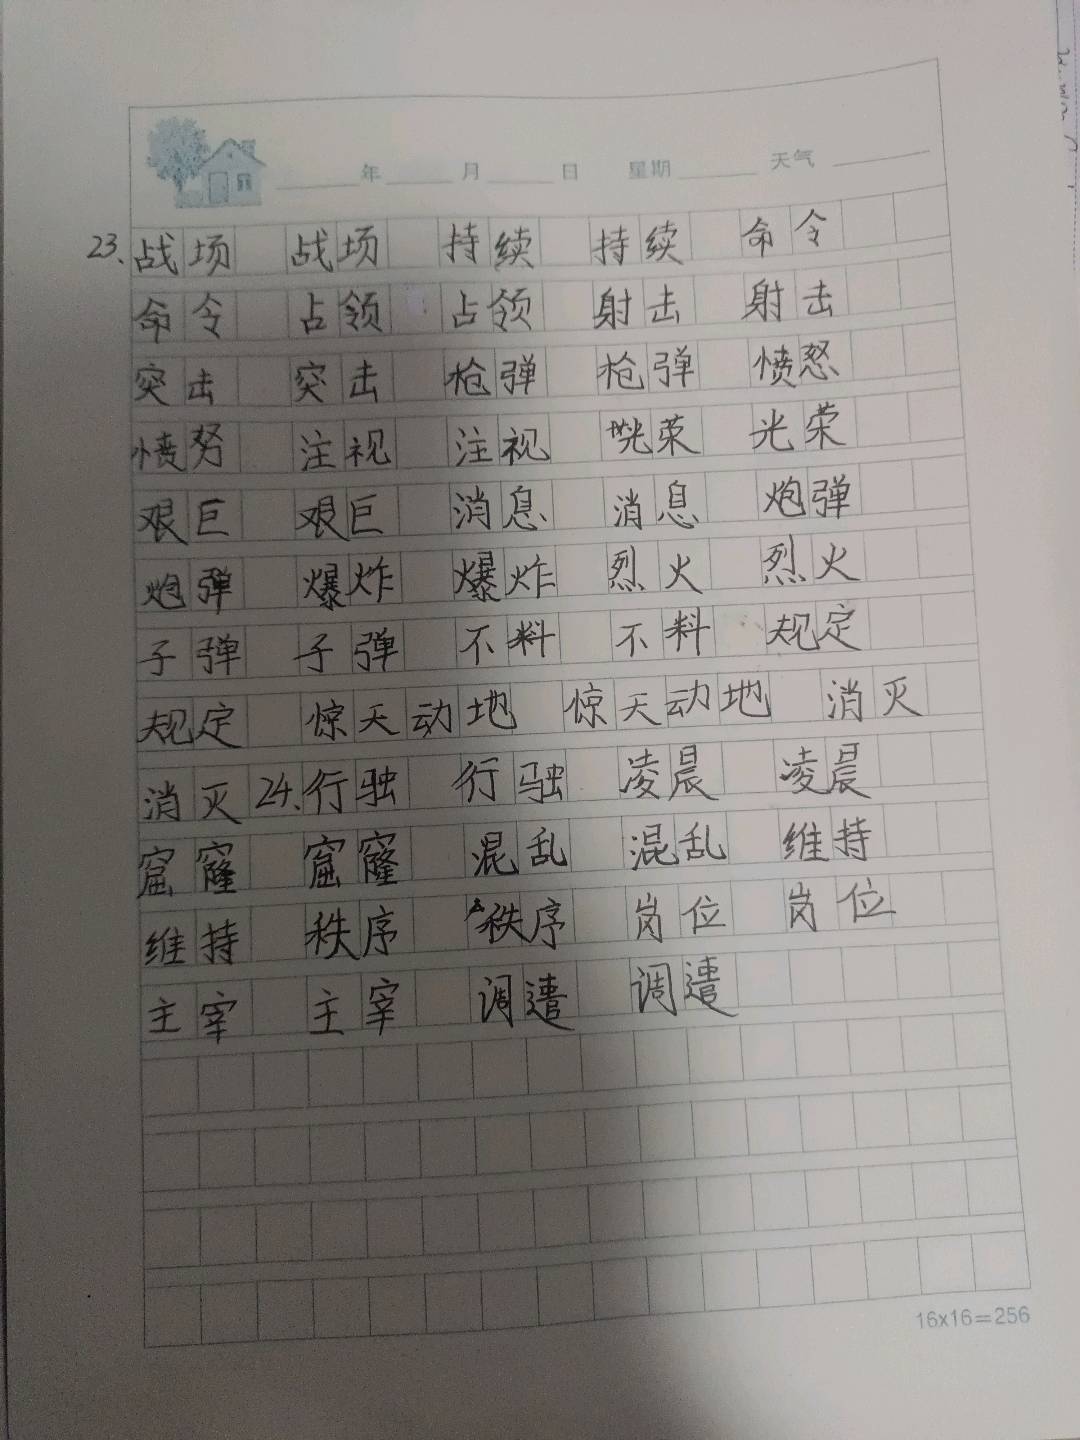 年 月 日 星期 天气
23、战场 战场 持续 持续 命令
命令 占领 占领 射击 射击
突击 突击 枪弹 枪弹 愤怒
愤努 注视 注视 光荣 光荣
艰巨 艰巨 消息 消息 炮弹
炮弹 爆炸 爆炸 烈火 烈火
子弹 子弹 不料 不料 规定
规定 惊天动地 惊天动地 消灭
消灭 24、行驶 行驶 凌晨 凌晨
窟窿 窟窿 混乱 混乱 维持
维持 秩序 秩序 岗位 岗位
主宰 主宰 调遣 调遣
16x16=256